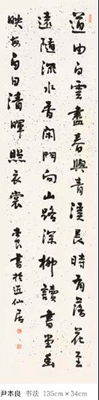 道由白雲盡春與青溪長時有落花至
遠隨流水香閑門向山路深柳讀書堂幽
映每白日清暉照衣裳
本良書於近仙居
尹本良 书法 135cm×34cm